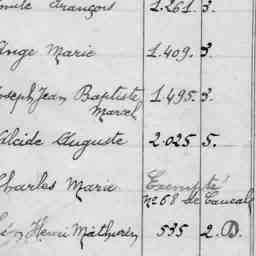 François 1.261. 3.
Ange Marie 1.409. 3.
Joseph Jean Baptiste 1.495. 3.
Marcel
Alcide Auguste 2.025. 5.
Charles Marie Exempté
n° 68 de Cancale
Henri Mathurin 535 2. D.